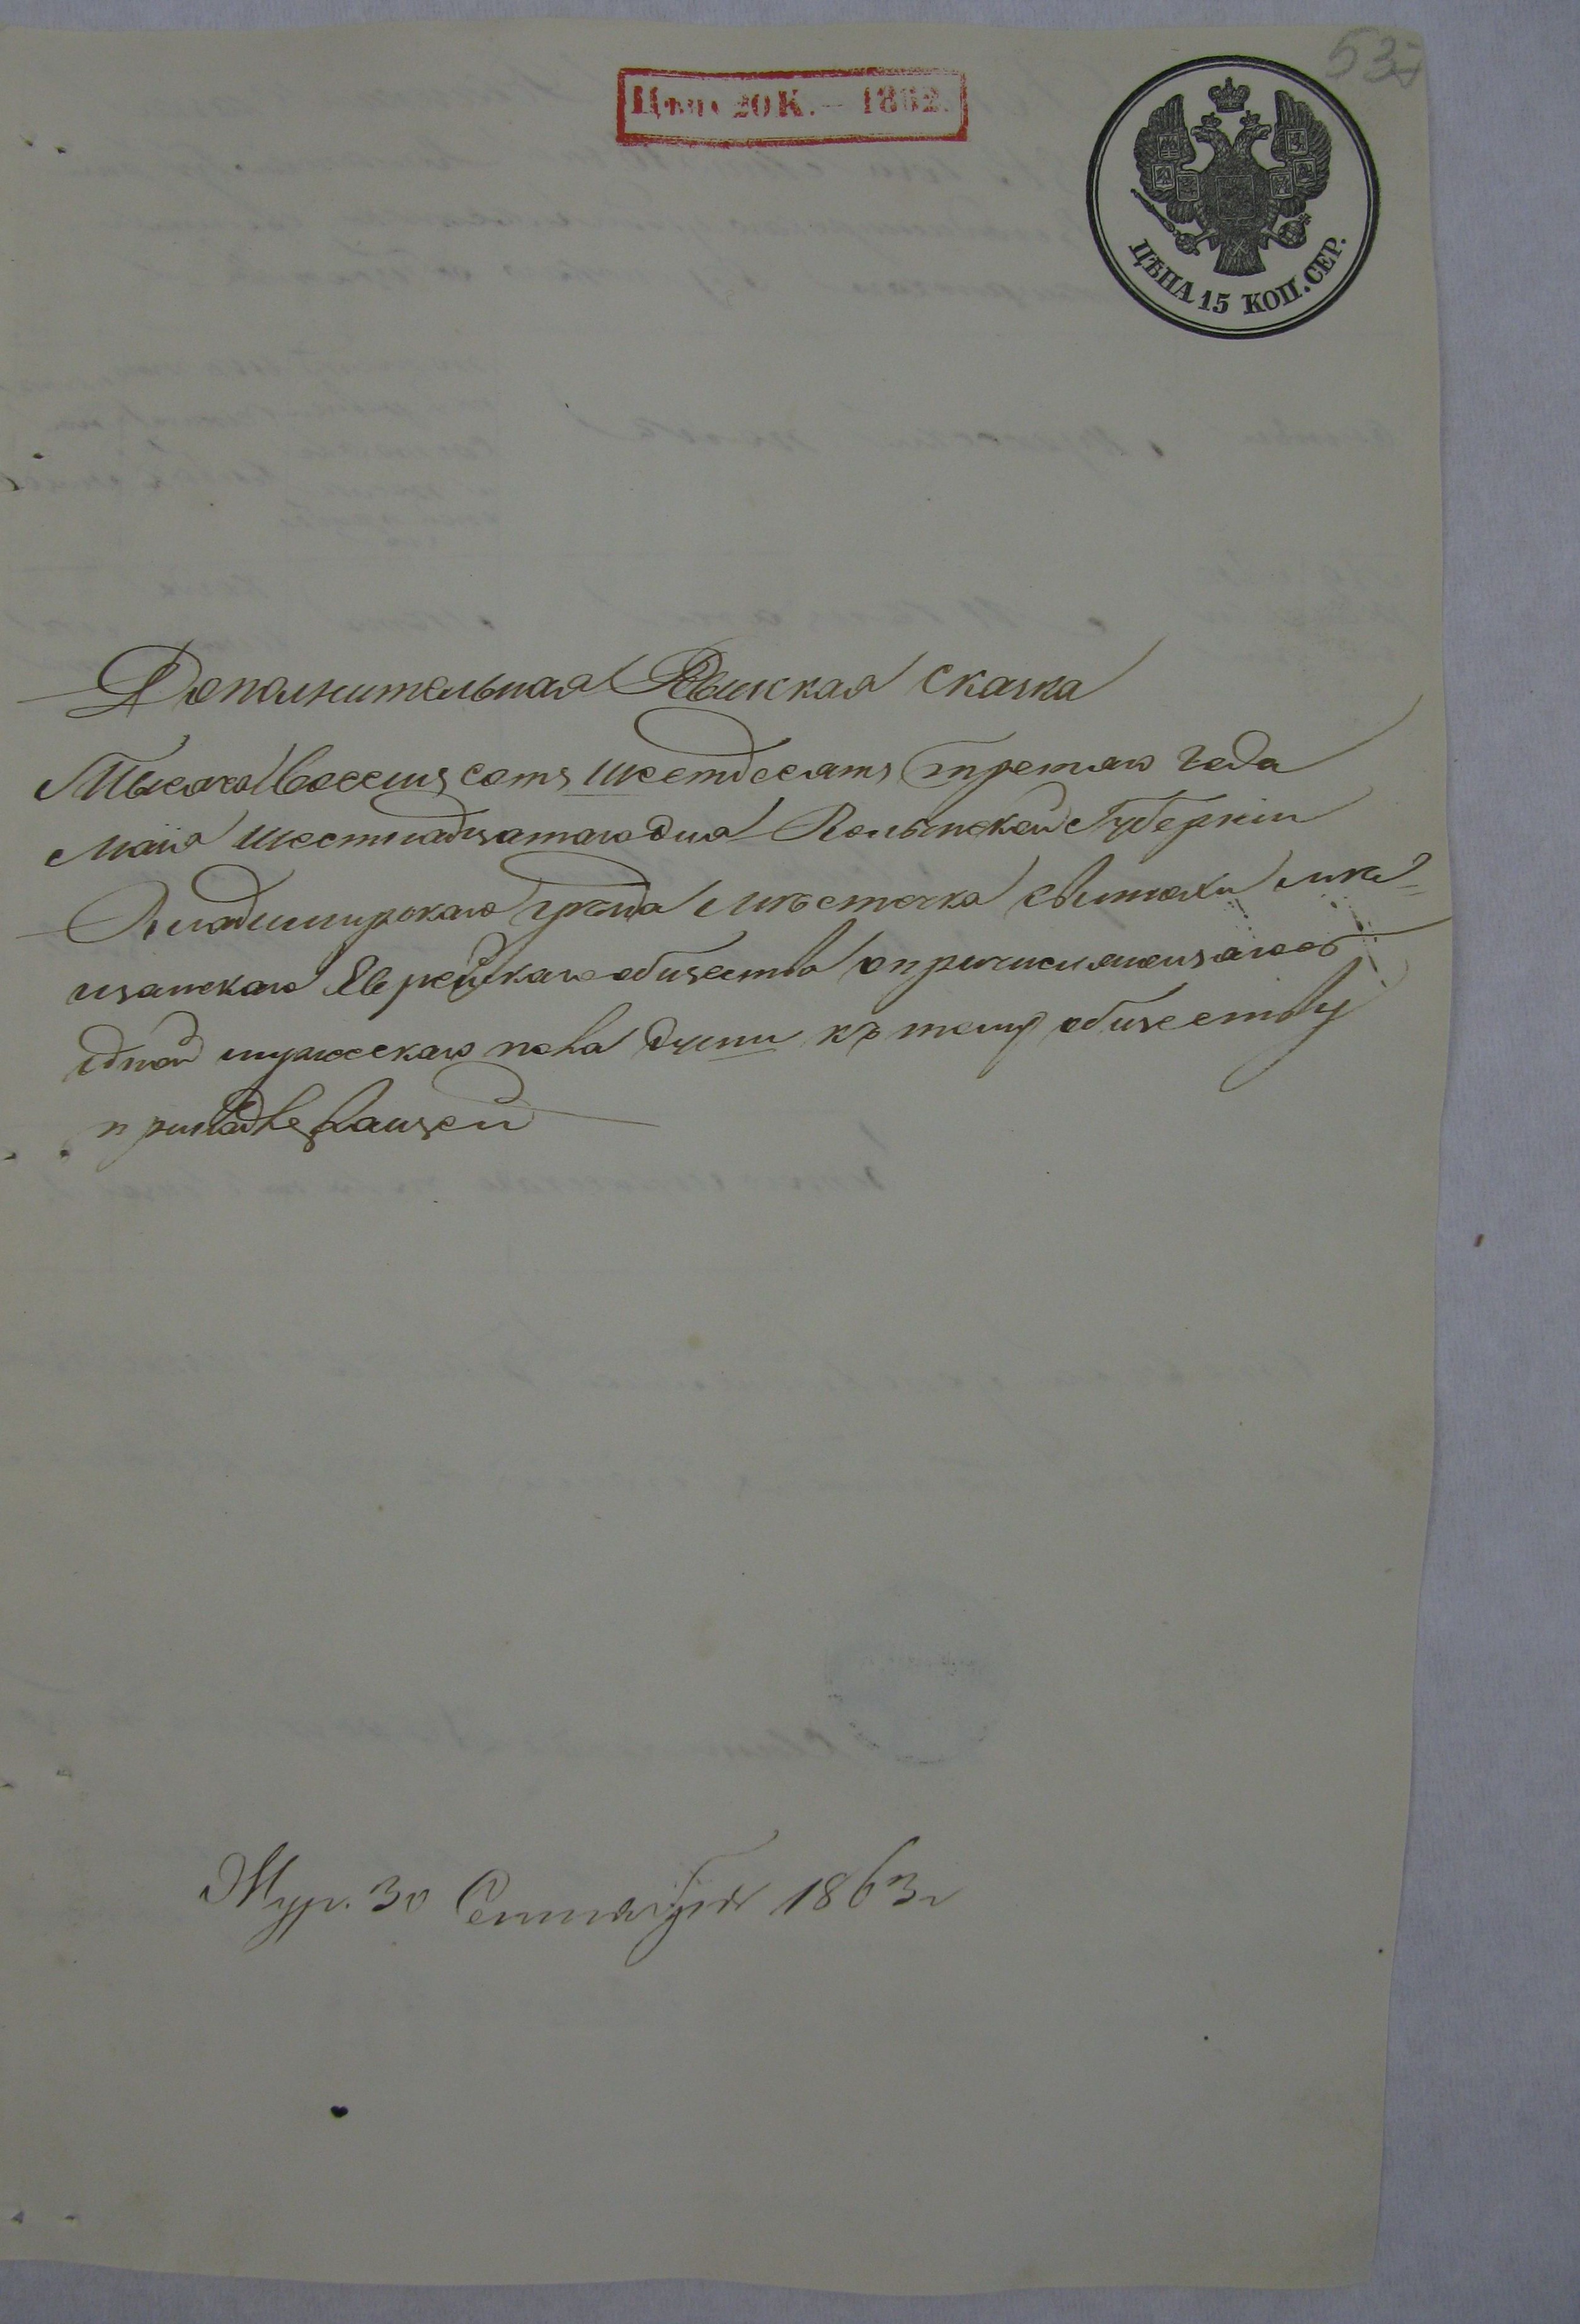 53
Цѣна 20 К. — 1862.
ЦѢНА 15 КОП. СЕР.
Дополнительная Ревизская сказка
Тысяча восемь сотъ шестдесятъ третяго года
Маія шестнадцатаго дня Волынской Губерніи
Владимирскаго уѣзда мѣстечка Свинюхи мѣ-
щанскаго Еврейскаго общества о причисляющагося
одной мужескаго пола души къ тому обществу
принадлежащей
Жур. 30 Сентября 1863 г